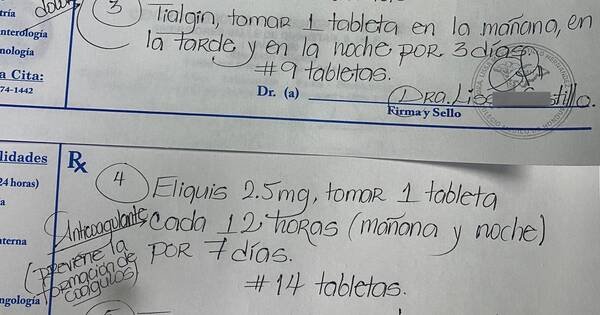 dolor
3) Tialgin, tomar 1 tableta en la mañana, en
la tarde y en la noche por 3 días.
#9 tabletas.
tría
nterología
nología
a Cita:
74-1442
Dr. (a)
Dra. Lis
stillo.
Firma y Sello
lidades
24 horas)
a
terna
ngología
Rx
4) Eliquis 2.5mg, tomar 1 tableta
cada 12 horas (mañana y noche)
por 7 días.
#14 tabletas.
Anticoagulante
(previene la
formación de
coágulos)